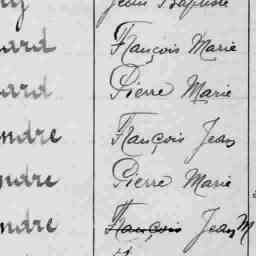 Jean Baptiste
ard François Marie
ard Pierre Marie
ndre François Jean
ndre Pierre Marie
ndre François Jean M